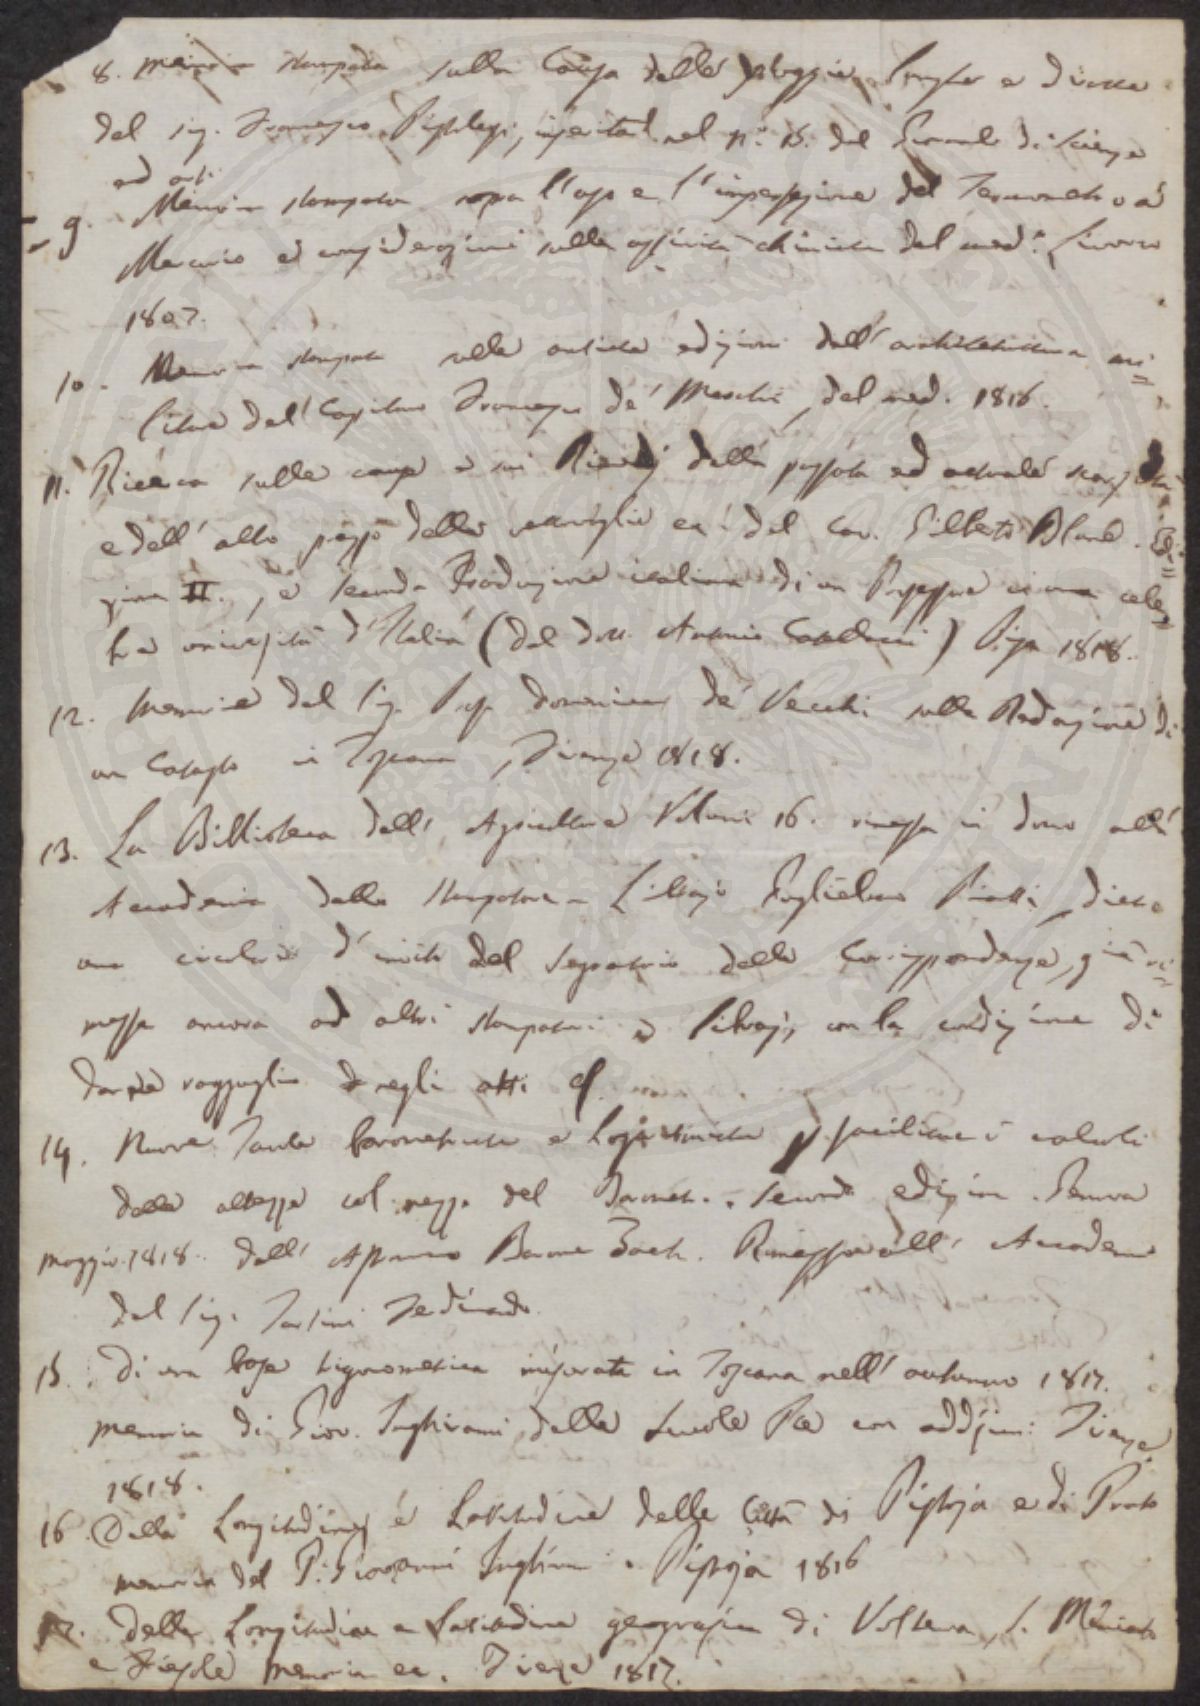 8. Memoria stampata sulla Causa delle pioggie lunghe e dirotte
del sig. Francesco Pistolesi, inserita nel n.° 15. del Giornale di Scienze
ed arti.
9. Memoria stampata sopra l'uso e l'imperfezione del Termometro a
Mercurio ed considerazioni sulla affinità chimica del med.° Livorno
1807.
10. Memoria stampata sulle antiche edizioni dell'architettura mi=
litare del Capitano Francesco de' Marchi, del med. 1816.
11. Ricerca sulle cause e sui Rimedj della passata ed attuale scarsità
e dell'alto prezzo delle vettovaglie ec. del Cav. Gilberto Blane. Edi=
zione II., e seconda Traduzione italiana di un Professore in una cele=
bre università d'Italia (del dott. Antonio Catellacci) Pisa 1818.
12. Memorie del Sig. Prof. Domenico de' Vecchi sulla Redazione di
un Catasto in Toscana, Firenze 1818.
13. La Biblioteca dell'Agricoltore Volumi 16. rimessa in dono all'
Accademia dallo Stampatore = Libraio Guglielmo Piatti, dietro
una circolare d'invito del Segretario delle Corrispondenze, già ri=
messa ancora ad altri stampatori e Libraj, con la condizione di
darne ragguaglio negli atti
14. Nuove Tavole barometriche e Logaritmiche p. facilitare i calcoli
delle altezze col mezzo del Baromet. seconda edizione. Genova
Maggio 1818. dell'Astronomo Barone Zach. Rimesse all'Accademia
dal Sig. Tartini Ferdinando.
15. Di una base trigonometrica misurata in Toscana nell'autunno 1817.
memoria di Giov. Inghirami delle Scuole Pie con addizioni. Firenze
1818.
16. Della Longitudine e Latitudine delle Città di Pistoja e di Prato
memoria del P. Giovanni Inghirami. Pistoja 1816
17. Della Longitudine e Latitudine geografica di Volterra, S. Miniato
e Fiesole memoria ec. Firenze 1817.